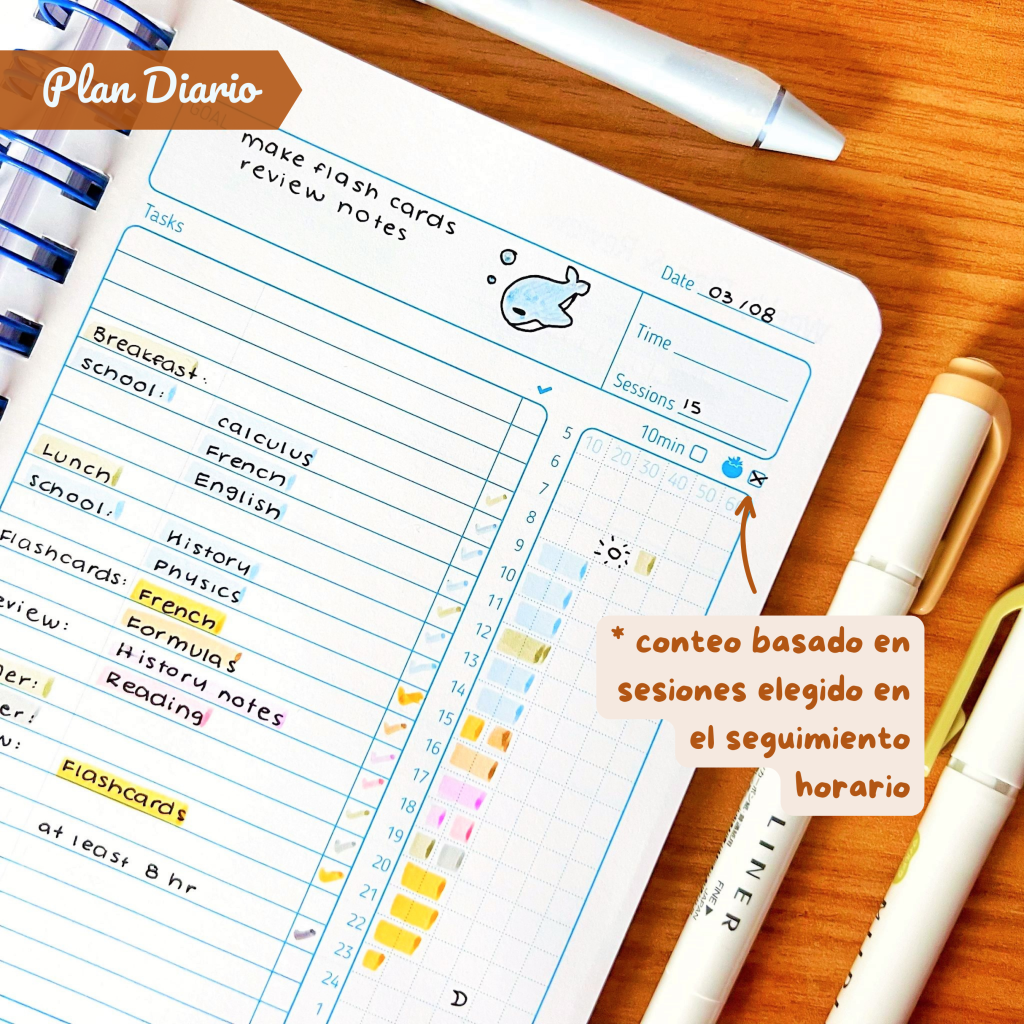 Plan Diario
GOAL
make flash cards
review notes
Tasks
Date 03/08
Time
Sessions 15
10min
10 20 30 40 50 60
Breakfast.
school:
calculus
French
English
Lunch
school:
History
Physics
Flashcards:
French
Formulas
History notes
Reading
Flashcards
at least 8 hr
5
6
7
8
9
10
11
12
13
14
15
16
17
18
19
20
21
22
23
24
1
D
* conteo basado en
sesiones elegido en
el seguimiento
horario
LINER
FINE
JAPAN